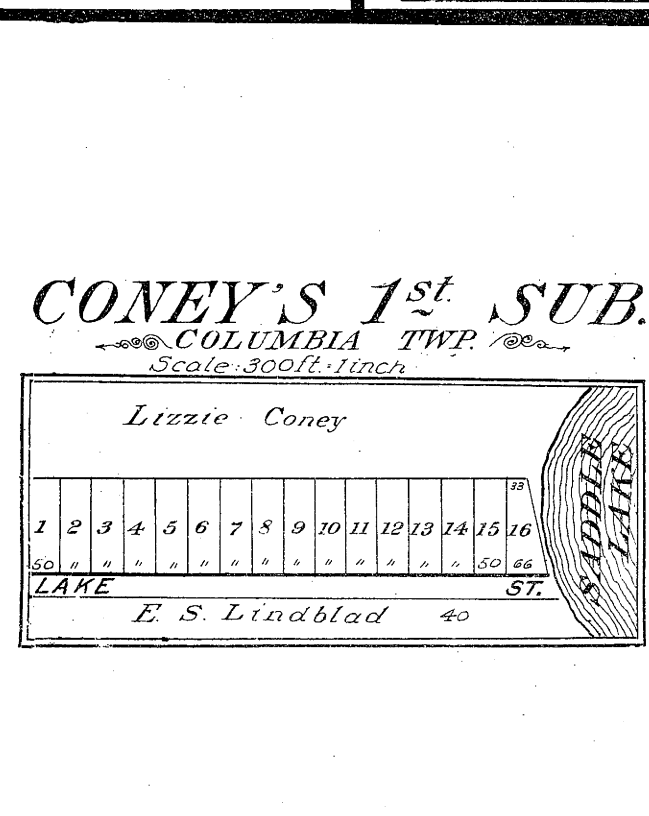 CONEY'S 1st. SUB.
COLUMBIA TWP.
Scale: 300ft.=1inch
Lizzie Coney
33
1 2 3 4 5 6 7 8 9 10 11 12 13 14 15 16
50 " " " " " " " " " " " " " 50 66
LAKE ST.
E. S. Lindblad 40
SADDLE
LAKE